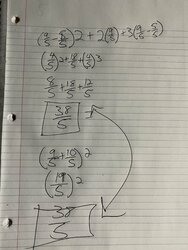 (9/5 - 5/5)2 + 2(9/5) + 3(9/5 - 5/5)
(4/5)2 + 18/5 + (4/5)3
8/5 + 18/5 + 12/5
38/5
(9/5 + 10/5)2
(19/5)2
38/5